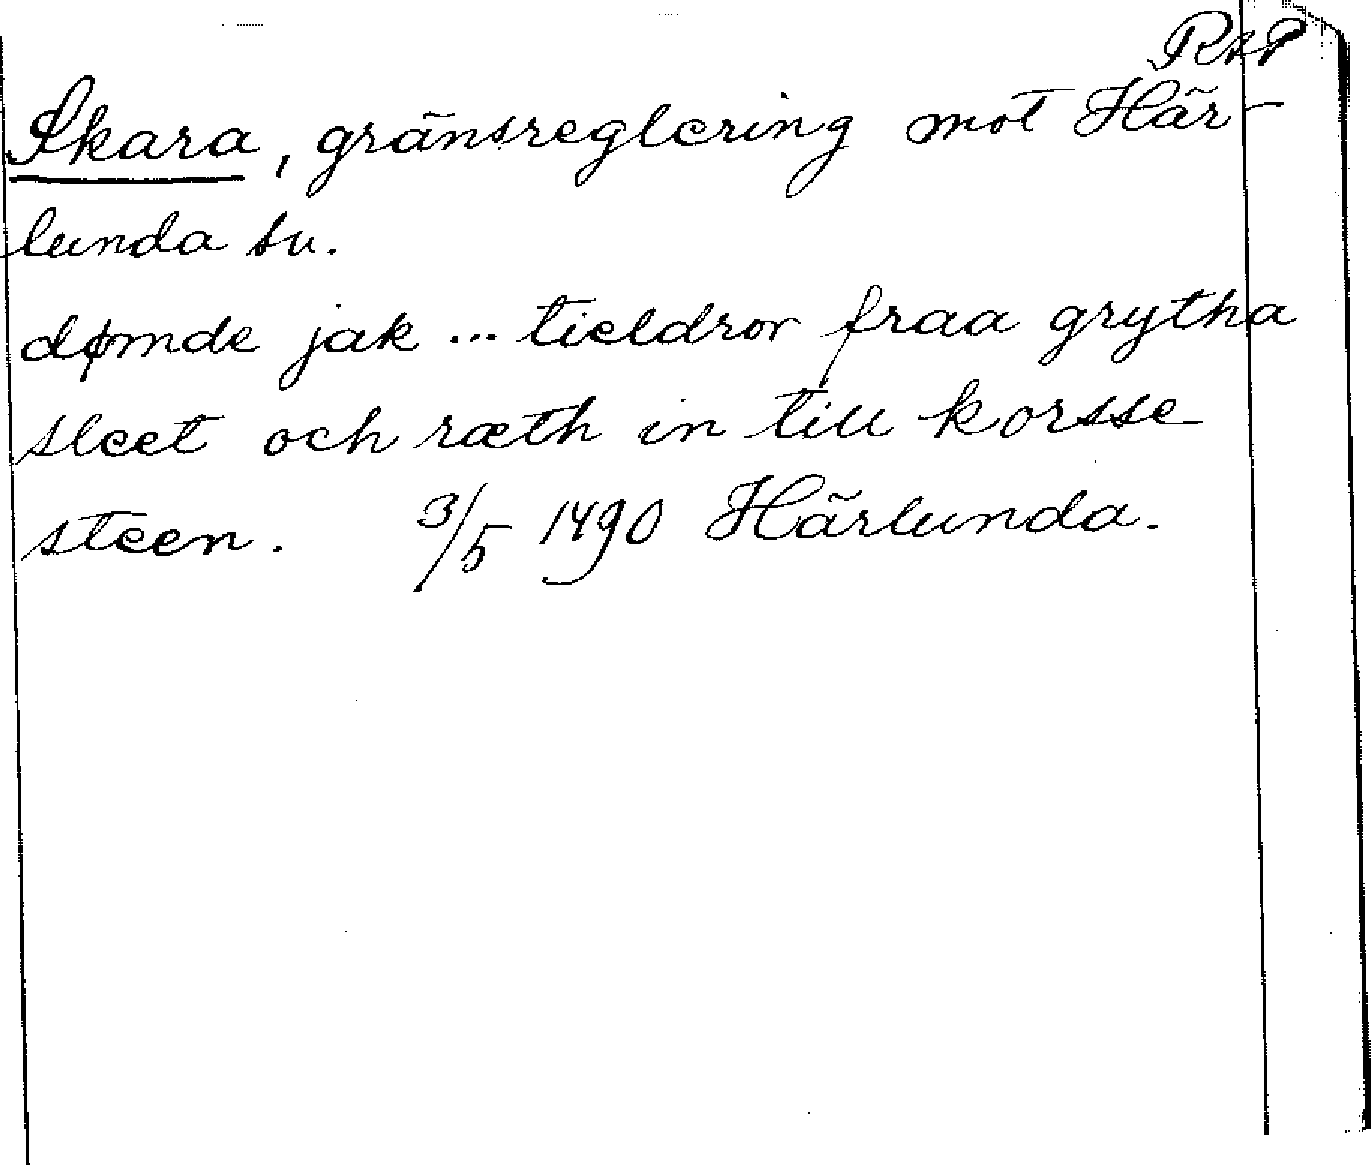 RAP
Skara, gränsreglering mot Här-
lunda sn.
dømde jak ... tieldror fraa grytha
sleet och ræth in till korsse
steen. 3/5 1490 Härlunda.